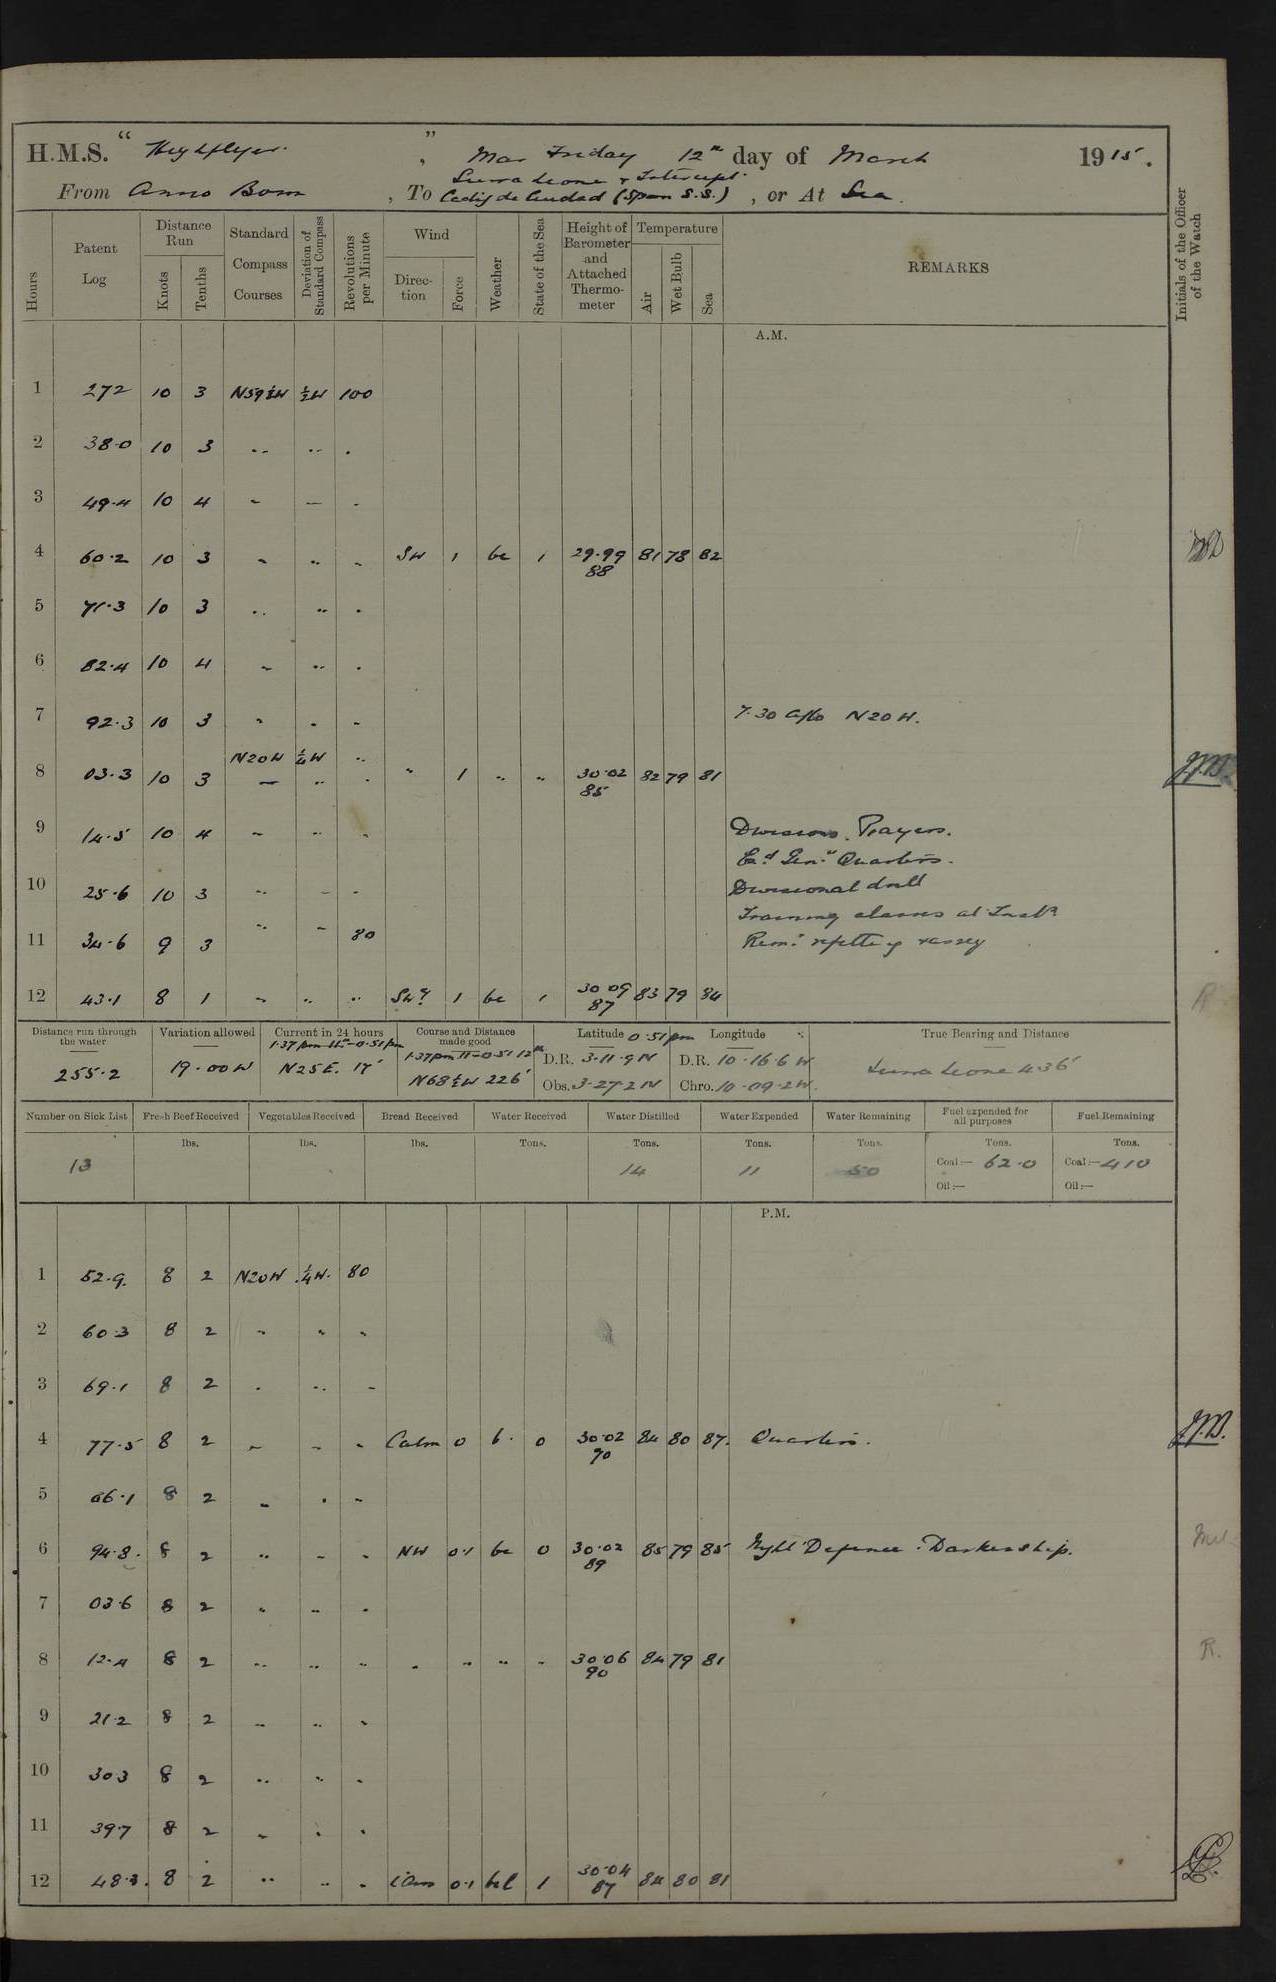 H.M.S. " Highflyer. " , Mar Friday 12th day of March 1915.
Sierra Leone & Intercept
From Anno Bom , To Cadiz de Ciudad (Span S.S.) , or At Sea.
Hours
Patent Log
Distance Run
Knots
Tenths
Standard Compass Courses
Deviation of Standard Compass
Revolutions per Minute
Wind
Direction
Force
Weather
State of the Sea
Height of Barometer and Attached Thermometer
Temperature
Air
Wet Bulb
Sea
REMARKS
Initials of the Officer of the Watch
A.M.
1 272 10 3 N59½W ½W 100
2 38.0 10 3 .. .. .
3 49.4 10 4 - - -
4 60.2 10 3 - .. - SW 1 bc 1 29.99 81 78 82
88
5 71.3 10 3 .. .. .
6 82.4 10 4 - .. .
7 92.3 10 3 - - - 7.30 a/co N20W.
N20W ¼W ..
8 03.3 10 3 - .. . " 1 .. .. 30.02 82 79 81 J.J.B.
85
9 14.5 10 4 - .. - Divisions. Prayers.
Exd Genl Quarters.
10 25.6 10 3 .. - - Divisional drill
Training classes at Instn
11 34.6 9 3 .. - 80 Remr refitting
12 43.1 8 1 - .. .. SWly 1 bc 1 30.09 83 79 84 R
87
Distance run through the water
255.2
Variation allowed
19.00W
Current in 24 hours
1.37pm 11th - 0.51pm
N25E. 17'
Course and Distance made good
1.37pm 11-0.51 12th
N68½W 226'
Latitude 0.51pm Longitude
D.R. 3.11.9N D.R. 10.16.6W
Obs. 3.27.2N Chro. 10.09.2W.
True Bearing and Distance
Sierra Leone 436'
Number on Sick List
13
Fresh Beef Received
lbs.
Vegetables Received
lbs.
Bread Received
lbs.
Water Received
Tons.
Water Distilled
Tons.
14
Water Expended
Tons.
11
Water Remaining
Tons.
50
Fuel expended for all purposes
Tons.
Coal:— 62.0
Oil:—
Fuel Remaining
Tons.
Coal:— 410
Oil:—
P.M.
1 52.9. 8 2 N20W ¼W. 80
2 60.3 8 2 - " -
3 69.1 8 2 . .. -
4 77.5 8 2 - - - Calm 0 b. 0 30.02 84 80 87. Quarters. J.J.B.
90
5 86.1 8 2 - . -
6 94.8. 8 2 .. - - NW 0.1 bc 0 30.02 85 79 85 Night Defence. Darken ship.
89
7 03.6 8 2 " .. -
8 12.4 8 2 .. .. - . .. .. - 30.06 84 79 81 R.
90
9 21.2 8 2 .. .. -
10 30.3 8 2 .. " -
11 39.7 8 2 - . .
12 48.3. 8 2 .. .. - 0.1 bcl 1 30.04 84 80 81
87